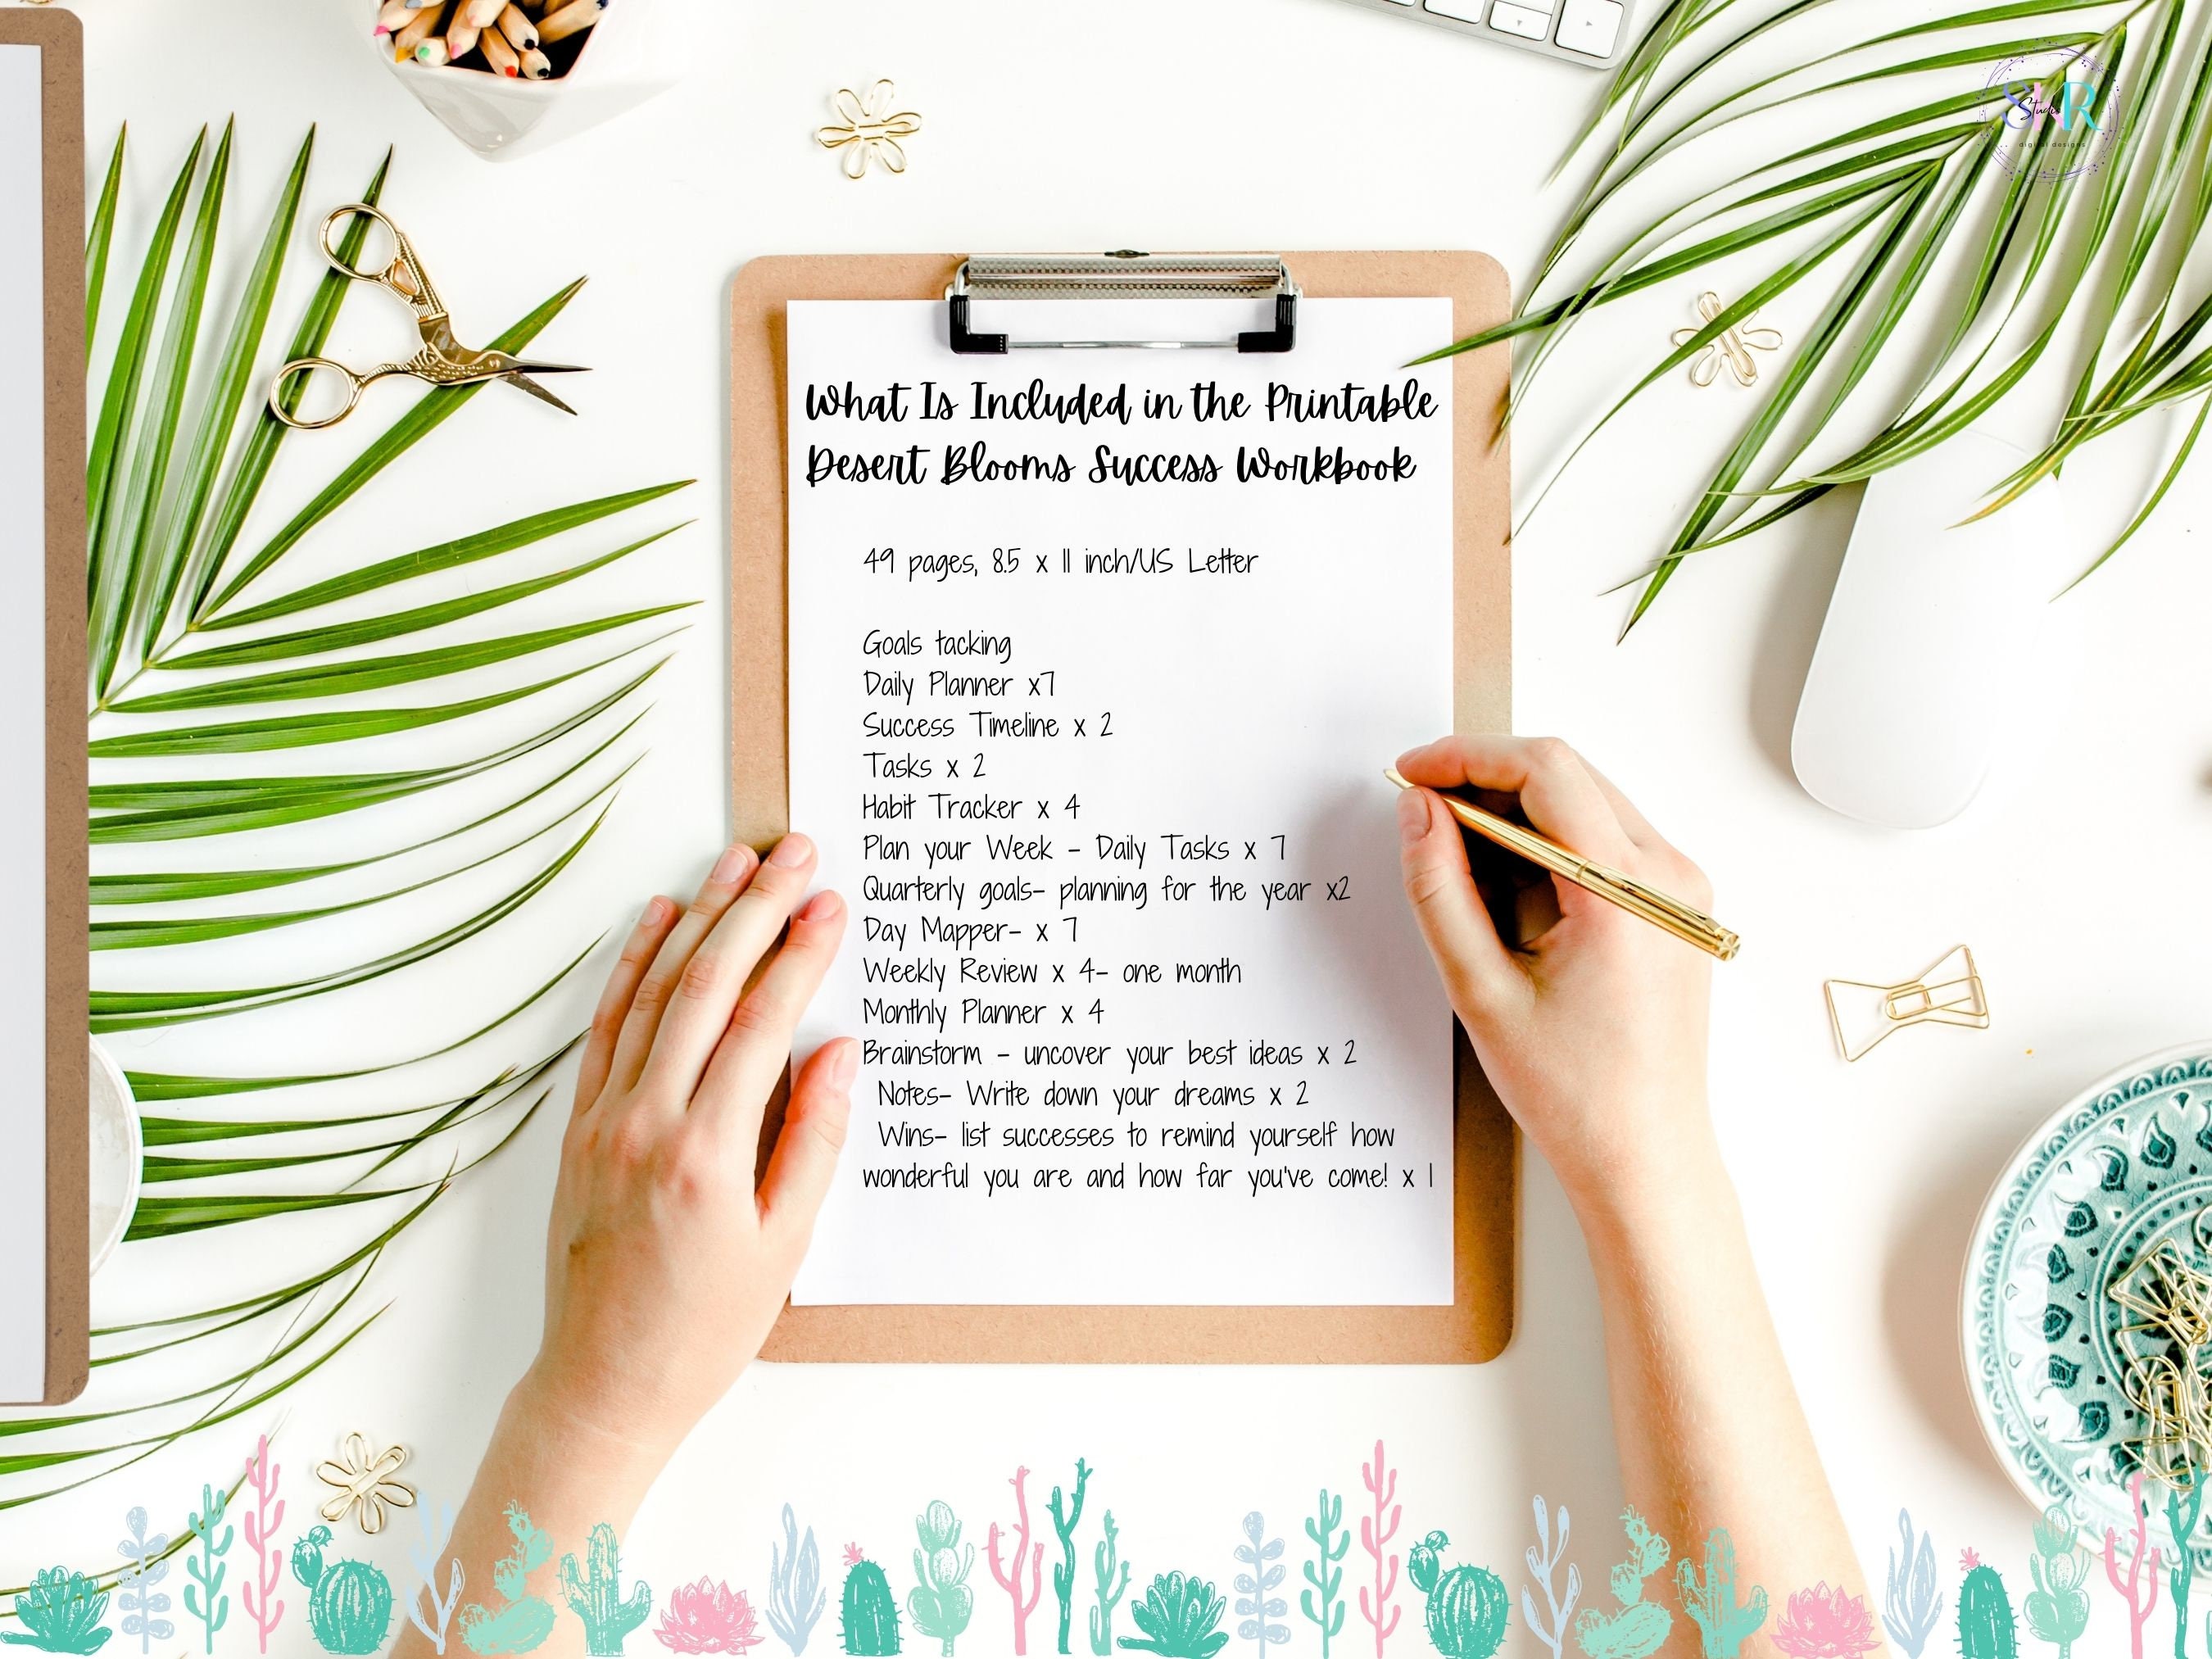 SNR
Studio
digital designs
What Is Included in the Printable
Desert Blooms Success Workbook
49 pages, 8.5 x 11 inch/US Letter
Goals tacking
Daily Planner x7
Success Timeline x 2
Tasks x 2
Habit Tracker x 4
Plan your Week - Daily Tasks x 7
Quarterly goals- planning for the year x2
Day Mapper- x 7
Weekly Review x 4- one month
Monthly Planner x 4
Brainstorm - uncover your best ideas x 2
Notes- Write down your dreams x 2
Wins- list successes to remind yourself how
wonderful you are and how far you've come! x 1